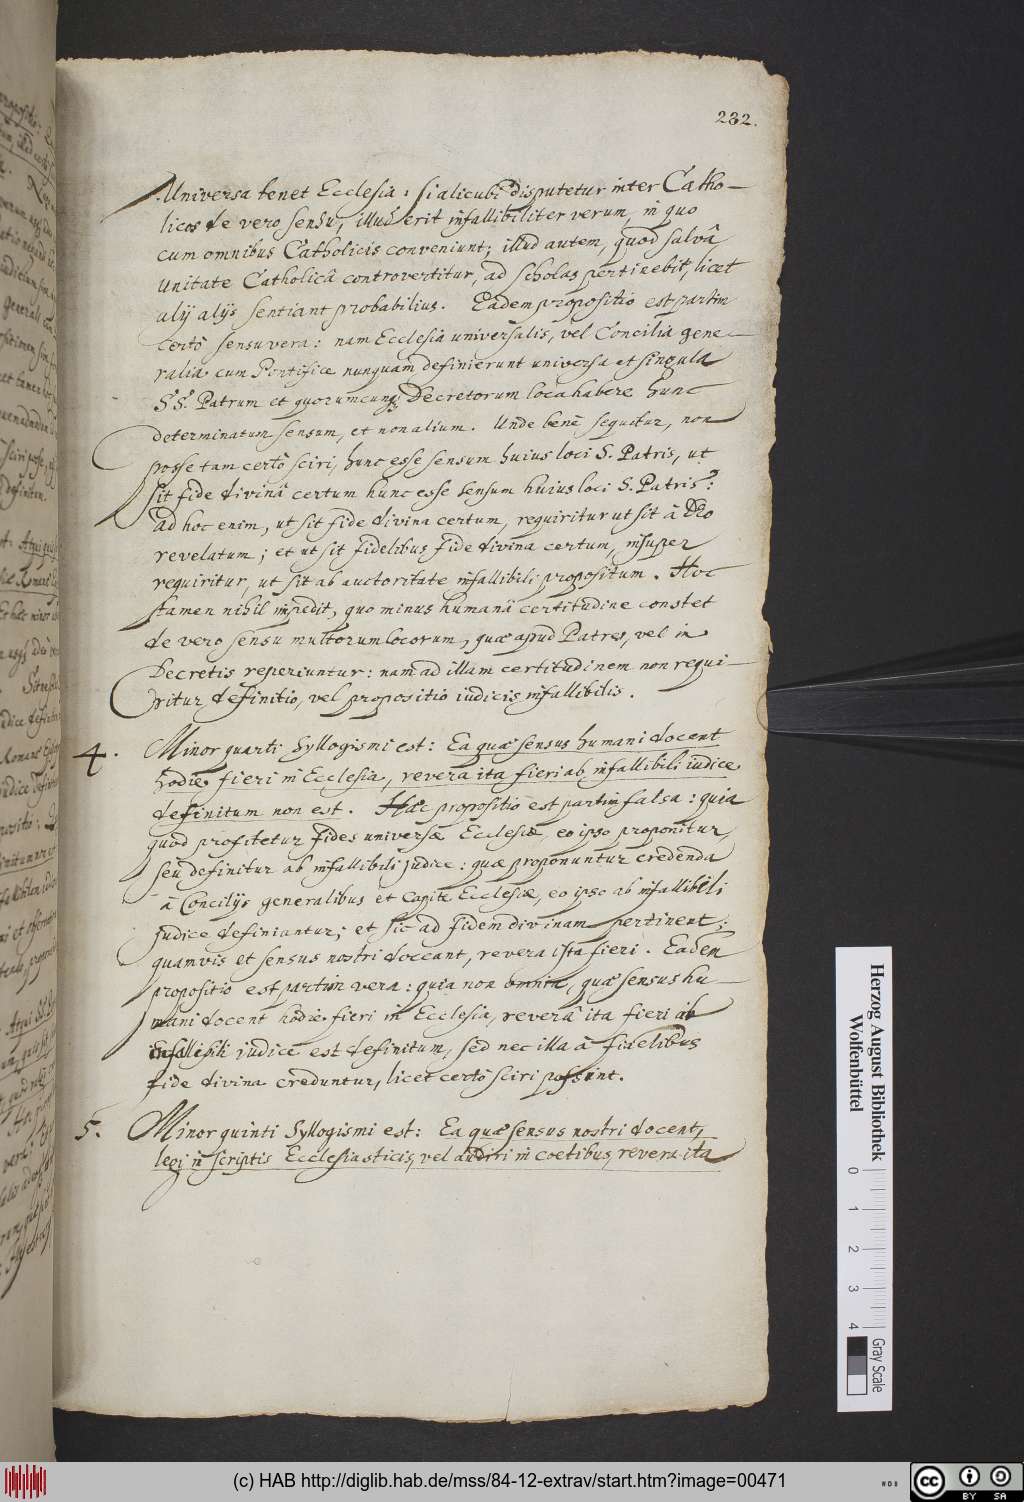 232.
Universa tenet Ecclesia: si alicubi disputetur inter Catho-
licos de vero sensu, illud erit infallibiliter verum, in quo
cum omnibus Catholicis conveniunt; illud autem, quod salvâ
unitate Catholicâ controvertitur, ad scholas pertinebit, licet
alij alijs sentiant probabilius. Eadem propositio est partim
certo sensu vera: nam Ecclesia universalis, vel Concilia gene-
ralia cum Pontifice nunquam definierunt universa et singula
S.S. Patrum et quorumcunq; Decretorum loca habere hunc
determinatum sensum, et non alium. Unde benè sequitur, non
posse tam certò sciri, hunc esse sensum huius loci S. Patris, ut
sit fide divinâ certum hunc esse sensum huius loci S. Patris:
ad hoc enim, ut sit fide divina certum, requiritur ut sit â Deo
revelatum; et ut sit fidelibus fide divina certum, insuper
requiritur, ut sit ab auctoritate infallibili propositum. Hoc
tamen nihil impedit, quo minus humanâ certitudine constet
de vero sensu multorum locorum, quæ apud Patres, vel in
Decretis reperiuntur: nam ad illam certitudinem non requi-
ritur definitio, vel propositio iudicis infallibilis.
4. Minor quarti Syllogismi est: Ea quæ sensus humani docent
hodie fieri in Ecclesia, revera ita fieri ab infallibili iudice
definitum non est. Hæc propositio est partim falsa: quia
quod profitetur fides universæ Ecclesiæ, eo ipso proponitur,
seu definitur ab infallibili judice: quæ proponuntur credenda
â Concilijs generalibus et Capite Ecclesiæ, eo ipso ab infallibili
judice definiantur; et sic ad fidem divinam pertinent;
quamvis et sensus nostri doceant, revera ista fieri. Eadem
propositio est partim vera: quia non omnia, quæ sensus hu-
mani docent hodie fieri in Ecclesia, reverâ ita fieri ab
infallibili judice est definitum, sed nec illa â fidelibus
fide divina creduntur, licet certò sciri possint.
5. Minor quinti Syllogismi est: Ea quæ sensus nostri docent,
legi in scriptis Ecclesiasticis, vel audiri in coetibus, revera ita
Herzog August Bibliothek
Wolfenbüttel
0 1 2 3 4
Gray Scale
(c) HAB http://diglib.hab.de/mss/84-12-extrav/start.htm?image=00471
cc BY SA